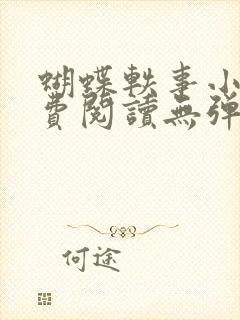 蝴蝶軼事小
費閱讀無彈
何途